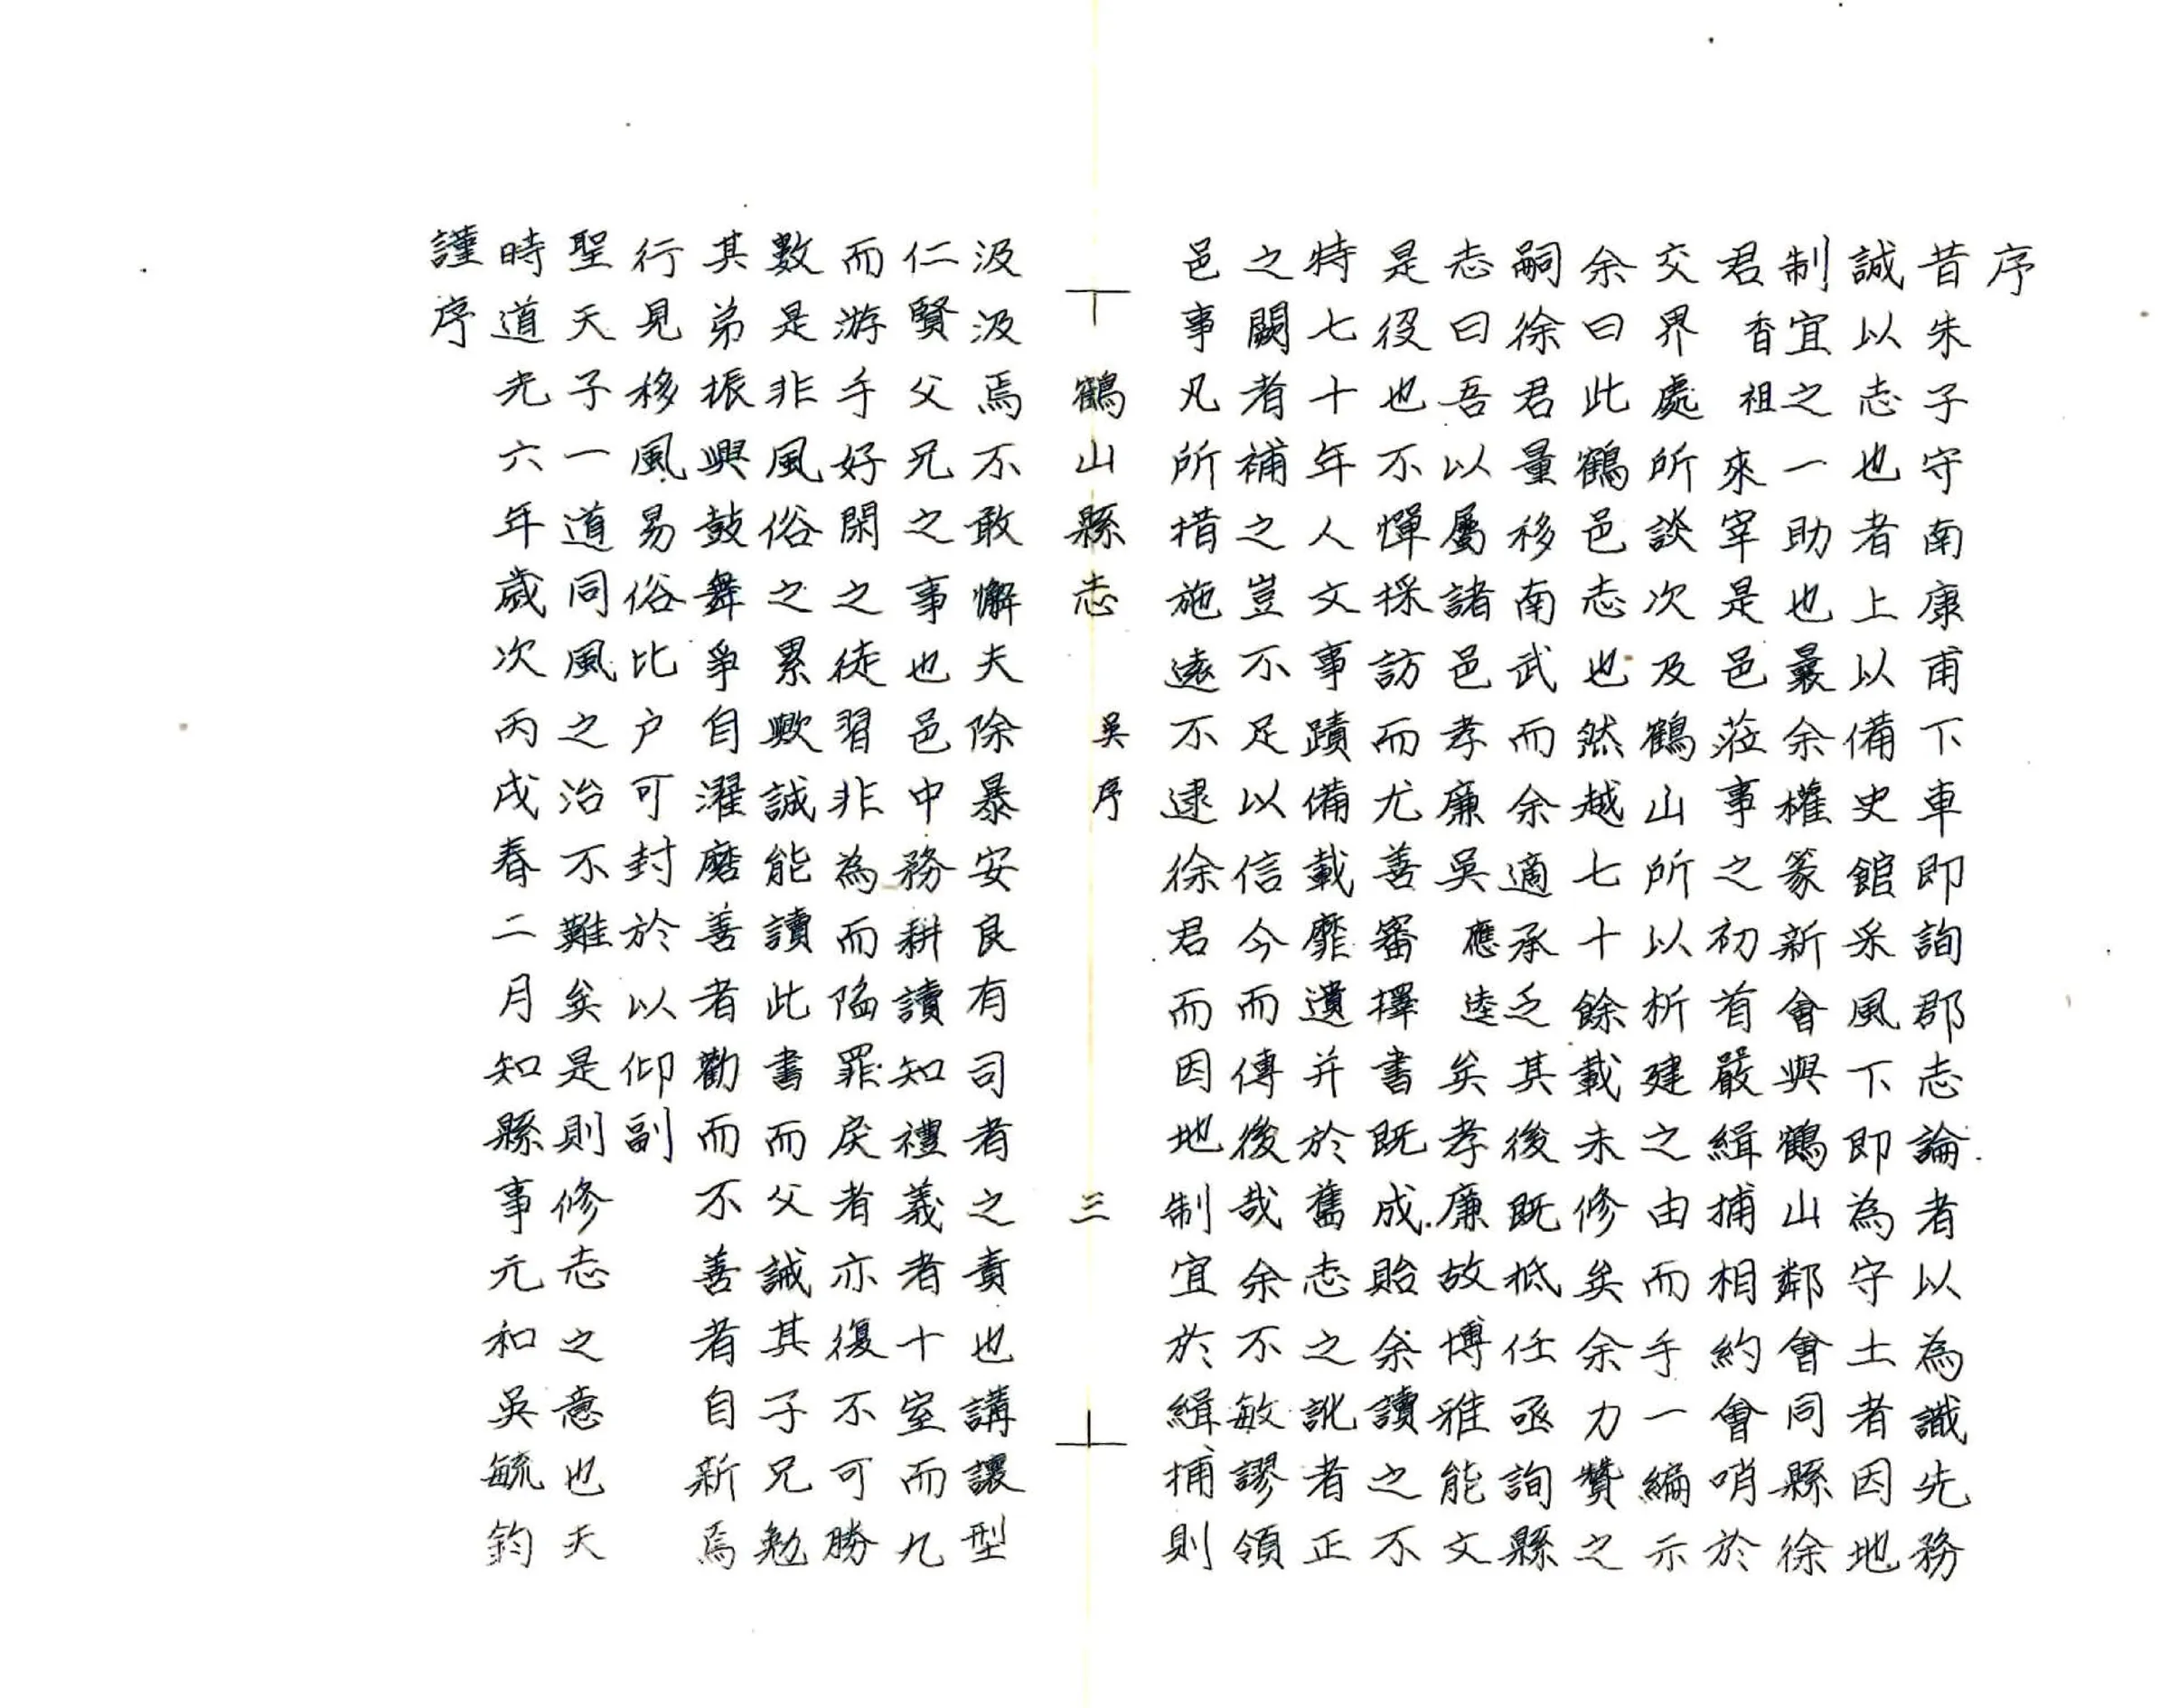 序
昔朱子守南康甫下車即詢郡志論者以為識先務
誠以志也者上以備史館采風下即為守土者因地
制宜之一助也曩余權篆新會與鶴山鄰會同縣徐
君香祖來宰是邑蒞事之初首嚴緝捕相約會哨於
交界處所談次及鶴山所以析建之由而手一編示
余曰此鶴邑志也然越七十餘載未修矣余力贊之
嗣徐君量移南武而余適承乏其後既抵任亟詢縣
志曰吾以屬諸邑孝廉吳應逵矣孝廉故博雅能文
是役也不憚採訪而尤善審擇書既成貽余讀之不
特七十年人文事蹟備載靡遺并於舊志之訛者正
之闕者補之豈不足以信今而傳後哉余不敏謬領
邑事凡所措施遠不逮徐君而因地制宜於緝捕則
鶴山縣志 吳序 三
汲汲焉不敢懈夫除暴安良有司者之責也講讓型
仁賢父兄之事也邑中務耕讀知禮義者十室而九
而游手好閑之徒習非為而陷罪戾者亦復不可勝
數是非風俗之累歟誠能讀此書而父誡其子兄勉
其弟振興鼓舞爭自濯磨善者勸而不善者自新焉
行見移風易俗比户可封於以仰副
聖天子一道同風之治不難矣是則修志之意也天
時道光六年歲次丙戌春二月知縣事元和吳毓鈞
謹序